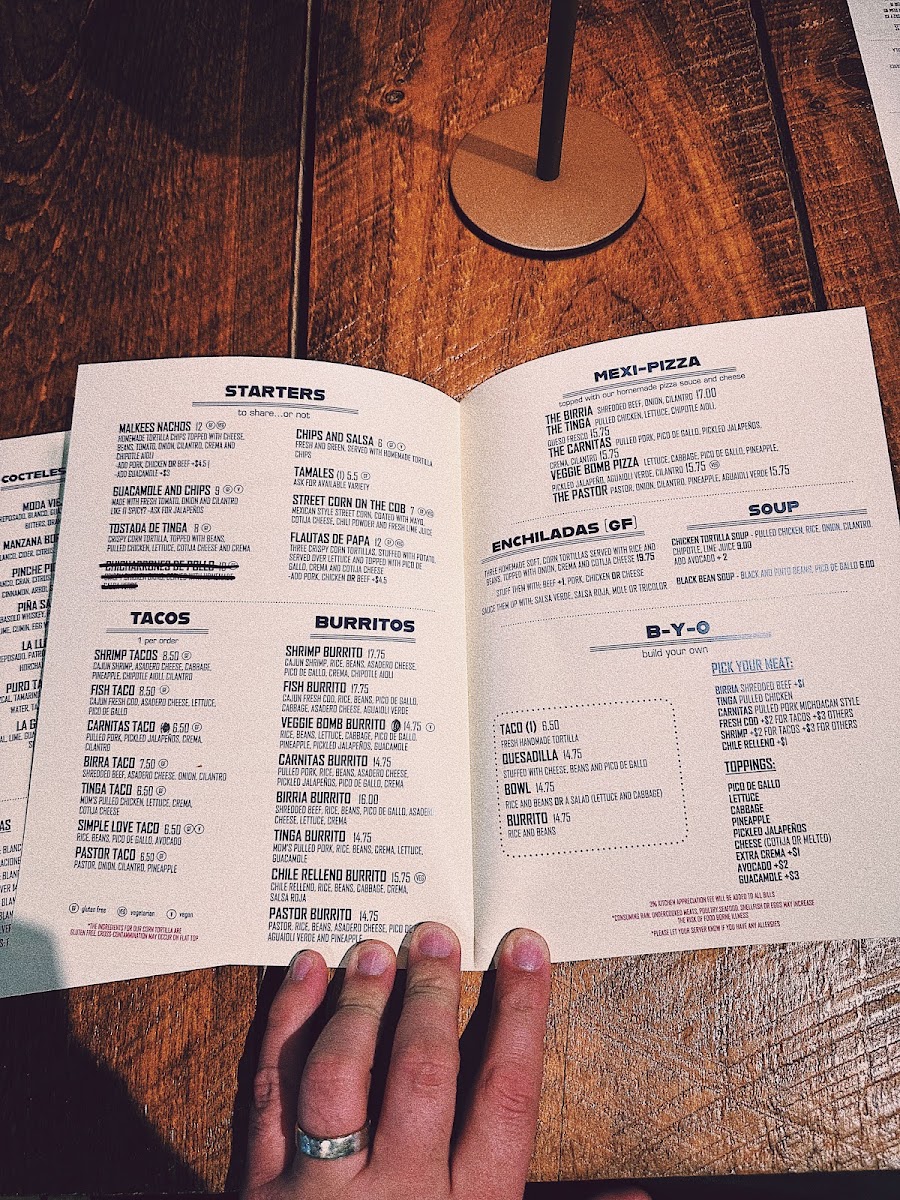 COCTELES
MODA VIE
REPOSADO, BLANCO,
BITTERS,
MANZANA BO
BLANCO, CIDER, CITRUS
PINCHE PI
BLANCO, CRAN, CITRUS
CINNAMON,
PIÑA SA
ABASOLO WHISKEY,
LIME, CUMIN, EGG
LA LL
REPOSADO,
HORCHA
PURO TA
TAMARIN
WATER,
LA G
STARTERS
to share...or not
MALKEES NACHOS 12 GF VEG
HOMEMADE TORTILLA CHIPS TOPPED WITH CHEESE,
BEANS, TOMATO, ONION, CILANTRO, CREMA AND
CHIPOTLE AIOLI
-ADD PORK, CHICKEN OR BEEF +$4.5 |
-ADD GUACAMOLE +$3
GUACAMOLE AND CHIPS 9 GF V
MADE WITH FRESH TOMATO, ONION AND CILANTRO
LIKE IT SPICY? -ASK FOR JALAPEÑOS
TOSTADA DE TINGA 8 GF
CRISPY CORN TORTILLA, TOPPED WITH BEANS,
PULLED CHICKEN, LETTUCE, COTIJA CHEESE AND CREMA
CHICHARRONES DE POLLO
CHIPS AND SALSA 6 GF V
FRESH AND GREEN, SERVED WITH HOMEMADE TORTILLA
CHIPS
TAMALES (1) 5.5 GF
ASK FOR AVAILABLE VARIETY
STREET CORN ON THE COB 7 GF VEG
MEXICAN STYLE STREET CORN, COATED WITH MAYO,
COTIJA CHEESE, CHILI POWDER AND FRESH LIME JUICE
FLAUTAS DE PAPA 12 GF VEG
THREE CRISPY CORN TORTILLAS, STUFFED WITH POTATO,
SERVED OVER LETTUCE AND TOPPED WITH PICO DE
GALLO, CREMA AND COTIJA CHEESE
-ADD PORK, CHICKEN OR BEEF +$4.5
TACOS
1 per order
SHRIMP TACOS 8.50 GF
CAJUN SHRIMP, ASADERO CHEESE, CABBAGE,
PINEAPPLE, CHIPOTLE AIOLI, CILANTRO
FISH TACO 8.50 GF
CAJUN FRESH COD, ASADERO CHEESE, LETTUCE,
PICO DE GALLO
CARNITAS TACO 6.50 GF
PULLED PORK, PICKLED JALAPEÑOS, CREMA,
CILANTRO
BIRRA TACO 7.50 GF
SHREDDED BEEF, ASADERO CHEESE, ONION, CILANTRO
TINGA TACO 6.50 GF
MOM'S PULLED CHICKEN, LETTUCE, CREMA,
COTIJA CHEESE
SIMPLE LOVE TACO 6.50 GF V
RICE, BEANS, PICO DE GALLO, AVOCADO
PASTOR TACO 6.50 GF
PASTOR, ONION, CILANTRO, PINEAPPLE
GF gluten free VEG vegetarian V vegan
*THE INGREDIENTS FOR OUR CORN TORTILLA ARE
GLUTEN FREE, CROSS-CONTAMINATION MAY OCCUR ON FLAT TOP
BURRITOS
SHRIMP BURRITO 17.75
CAJUN SHRIMP, RICE, BEANS, ASADERO CHEESE,
PICO DE GALLO, CREMA, CHIPOTLE AIOLI
FISH BURRITO 17.75
CAJUN FRESH COD, RICE, BEANS, PICO DE GALLO,
CABBAGE, ASADERO CHEESE, AGUAIOLI VERDE
VEGGIE BOMB BURRITO 14.75 V
RICE, BEANS, LETTUCE, CABBAGE, PICO DE GALLO,
PINEAPPLE, PICKLED JALAPEÑOS, GUACAMOLE
CARNITAS BURRITO 14.75
PULLED PORK, RICE, BEANS, ASADERO CHEESE,
PICKLED JALAPEÑOS, PICO DE GALLO, CREMA
BIRRIA BURRITO 16.00
SHREDDED BEEF, RICE, BEANS, PICO DE GALLO, ASADERO
CHEESE, LETTUCE, CREMA
TINGA BURRITO 14.75
MOM'S PULLED PORK, RICE, BEANS, CREMA, LETTUCE,
GUACAMOLE
CHILE RELLENO BURRITO 15.75 VEG
CHILE RELLENO, RICE, BEANS, CABBAGE, CREMA,
SALSA ROJA
PASTOR BURRITO 14.75
PASTOR, RICE, BEANS, ASADERO CHEESE, PICO DE
AGUAIOLI VERDE AND PINEAPPLE
MEXI-PIZZA
topped with our homemade pizza sauce and cheese
THE BIRRIA SHREDDED BEEF, ONION, CILANTRO 17.00
THE TINGA PULLED CHICKEN, LETTUCE, CHIPOTLE AIOLI,
QUESO FRESCO 15.75
THE CARNITAS PULLED PORK, PICO DE GALLO, PICKLED JALAPEÑOS,
CREMA, CILANTRO 15.75
VEGGIE BOMB PIZZA LETTUCE, CABBAGE, PICO DE GALLO, PINEAPPLE,
PICKLED JALAPEÑO, AGUAIOLI VERDE, CILANTRO 15.75 VEG
THE PASTOR PASTOR, ONION, CILANTRO, PINEAPPLE, AGUAIOLI VERDE 15.75
ENCHILADAS (GF)
THREE HOMEMADE SOFT, CORN TORTILLAS SERVED WITH RICE AND
BEANS, TOPPED WITH ONION, CREMA AND COTIJA CHEESE 19.75
STUFF THEM WITH: BEEF +1, PORK, CHICKEN OR CHEESE
SAUCE THEM UP WITH: SALSA VERDE, SALSA ROJA, MOLE OR TRICOLOR
SOUP
CHICKEN TORTILLA SOUP - PULLED CHICKEN, RICE, ONION, CILANTRO,
CHIPOTLE, LIME JUICE 9.00
ADD AVOCADO + 2
BLACK BEAN SOUP - BLACK AND PINTO BEANS, PICO DE GALLO 6.00
B-Y-O
build your own
TACO (1) 6.50
FRESH HANDMADE TORTILLA
QUESADILLA 14.75
STUFFED WITH CHEESE, BEANS AND PICO DE GALLO
BOWL 14.75
RICE AND BEANS OR A SALAD (LETTUCE AND CABBAGE)
BURRITO 14.75
RICE AND BEANS
PICK YOUR MEAT:
BIRRIA SHREDDED BEEF +$1
TINGA PULLED CHICKEN
CARNITAS PULLED PORK MICHOACAN STYLE
FRESH COD +$2 FOR TACOS +$3 OTHERS
SHRIMP +$2 FOR TACOS +$3 FOR OTHERS
CHILE RELLENO +$1
TOPPINGS:
PICO DE GALLO
LETTUCE
CABBAGE
PINEAPPLE
PICKLED JALAPEÑOS
CHEESE (COTIJA OR MELTED)
EXTRA CREMA +$1
AVOCADO +$2
GUACAMOLE +$3
3% KITCHEN APPRECIATION FEE WILL BE ADDED TO ALL BILLS
*CONSUMING RAW, UNDERCOOKED MEATS, POULTRY, SEAFOOD, SHELLFISH OR EGGS MAY INCREASE
THE RISK OF FOOD BORNE ILLNESS
*PLEASE LET YOUR SERVER KNOW IF YOU HAVE ANY ALLERGIES